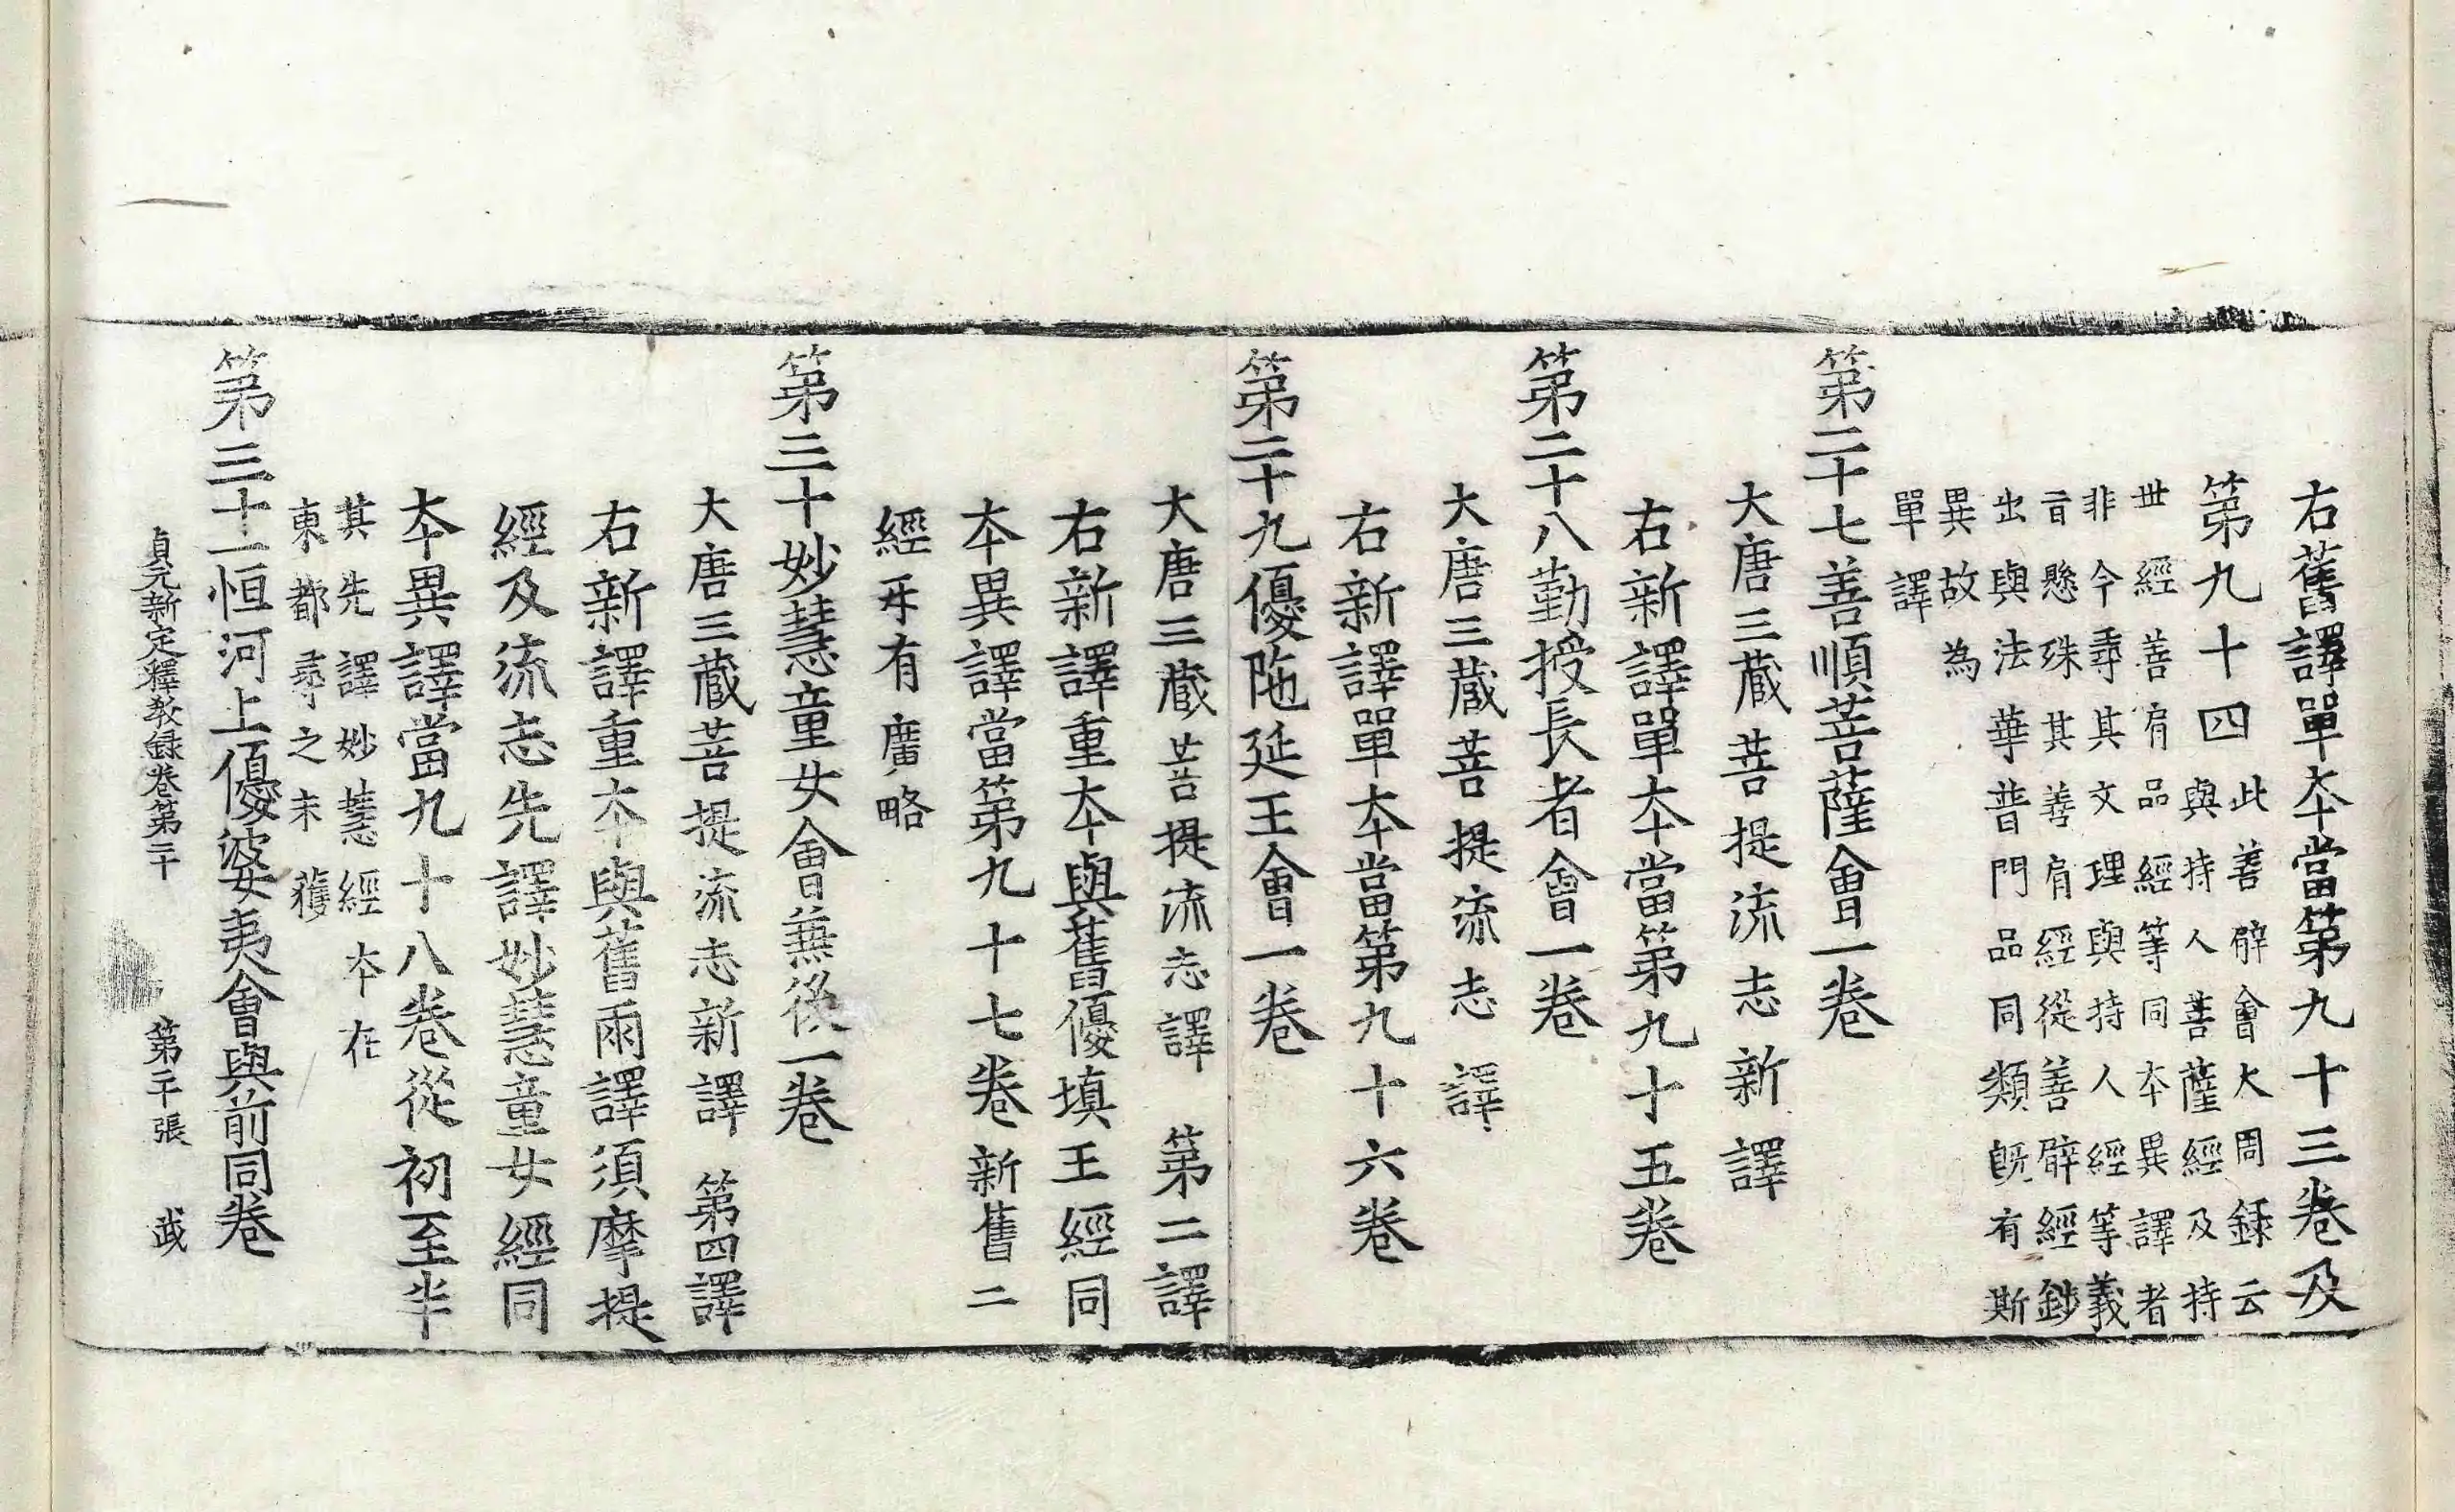 右舊譯單夲當第九十三卷及
第九十四此善臂會大周録云
與持人菩薩經及持
世經善肩品經等同夲異譯者
非今尋其文理與持人經等義
百懸殊其善肩經從善臂經鈔
出與法華普門品同類旣有斯
異故為
單譯
第二十七善順菩薩會一卷
大唐三藏菩提流志新譯
右新譯單夲當第九十五卷
第二十八勤授長者會一卷
大唐三藏菩提流志譯
右新譯單夲當第九十六卷
第二十九優陁延王會一卷
大唐三藏菩提流志譯 第二譯
右新譯重夲與舊優填王經同
夲異譯當第九十七卷新舊二
經互有廣略
第三十妙慧童女會兼後一卷
大唐三藏菩提流志新譯 第四譯
右新譯重夲與舊兩譯須摩提
經及流志先譯妙慧童女經同
夲異譯當九十八卷從初至半
其先譯妙慧經夲在
東都尋之未獲
第三十一恒河上優婆夷會與前同卷
貞元新定釋教録卷第二十 第二十張